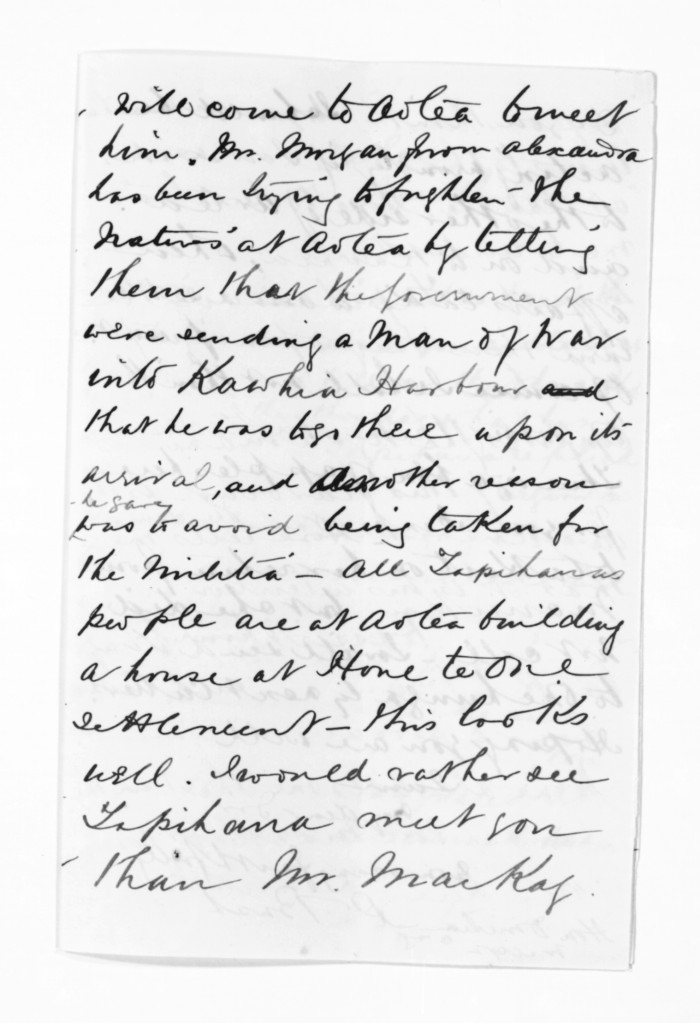 will come to Aotea to meet
him. Mr. Morgan from Alexandra
has been trying to frighten the
Natives at Aotea by telling
them that the Government
were sending a Man of War
into Kawhia Harbour and
that he was to go there upon its
arrival, and another reason
he says
was to avoid being taken for
the Militia - All Tapihanas
people are at Aotea building
a house at Hone te One
settlement - this looks
well. I would rather see
Tapihana meet you
than Mr. MacKay.